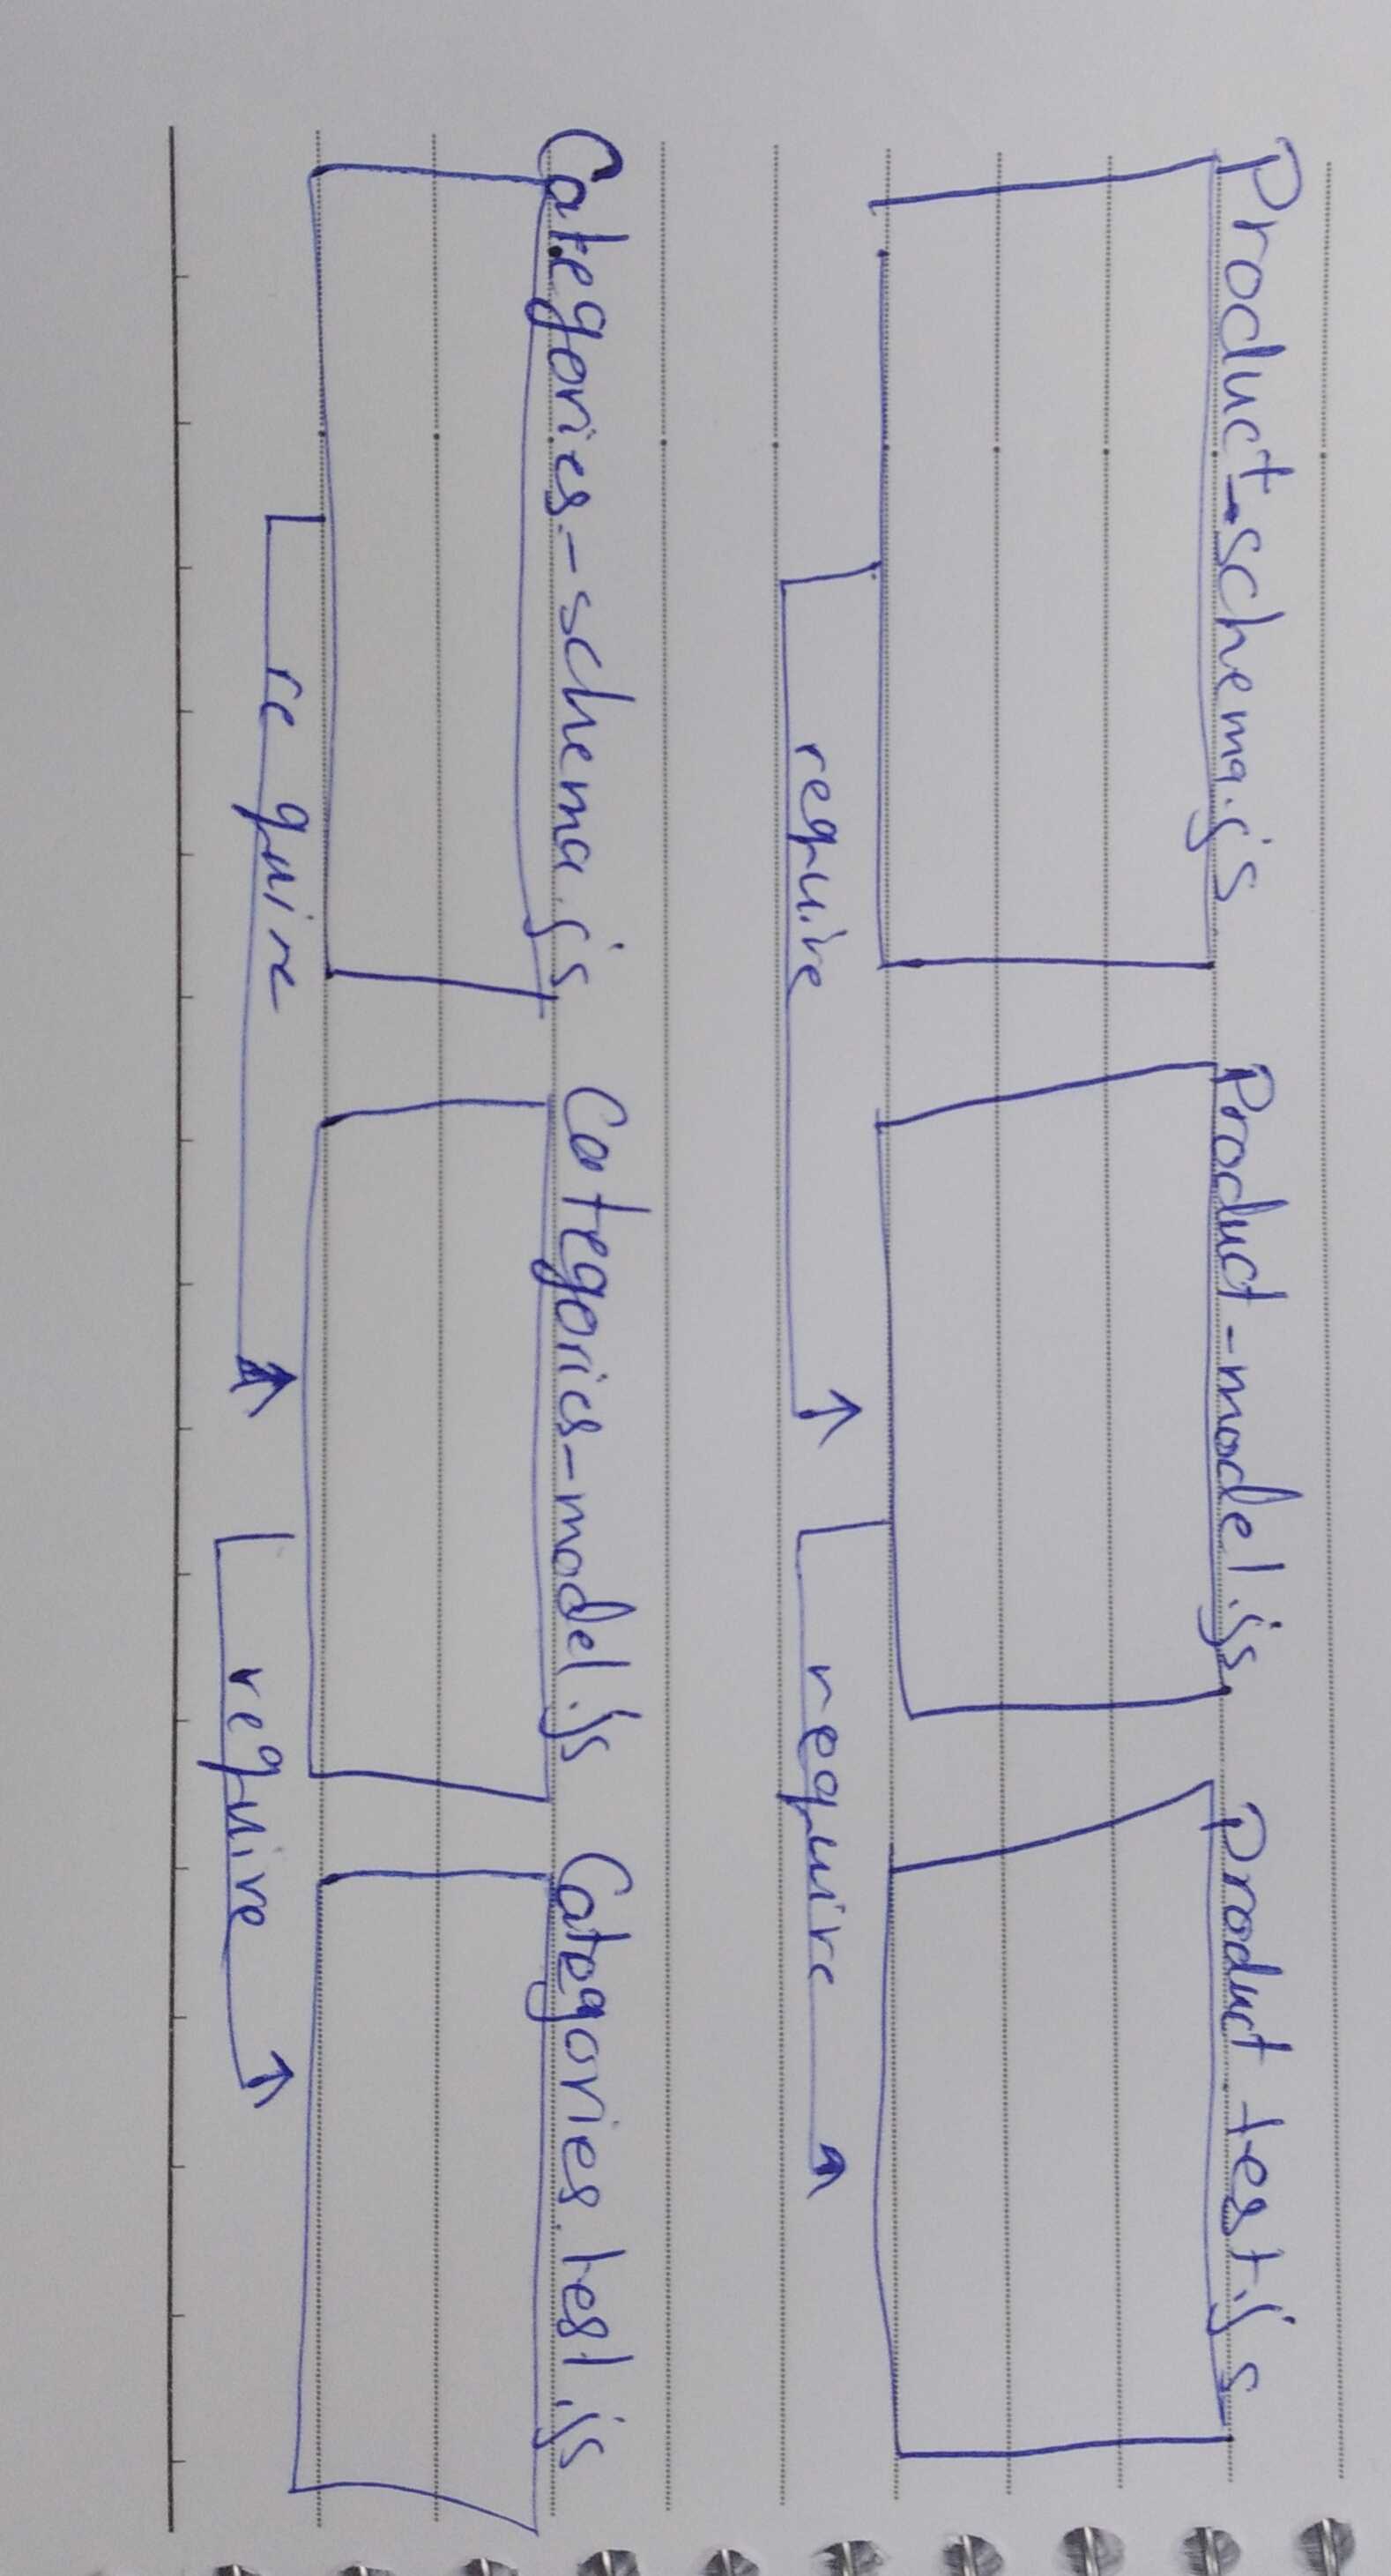 Product_schema.js Product-model.js Product.test.js
require require
Categories-schema.js Categories-model.js Categories.test.js
require require